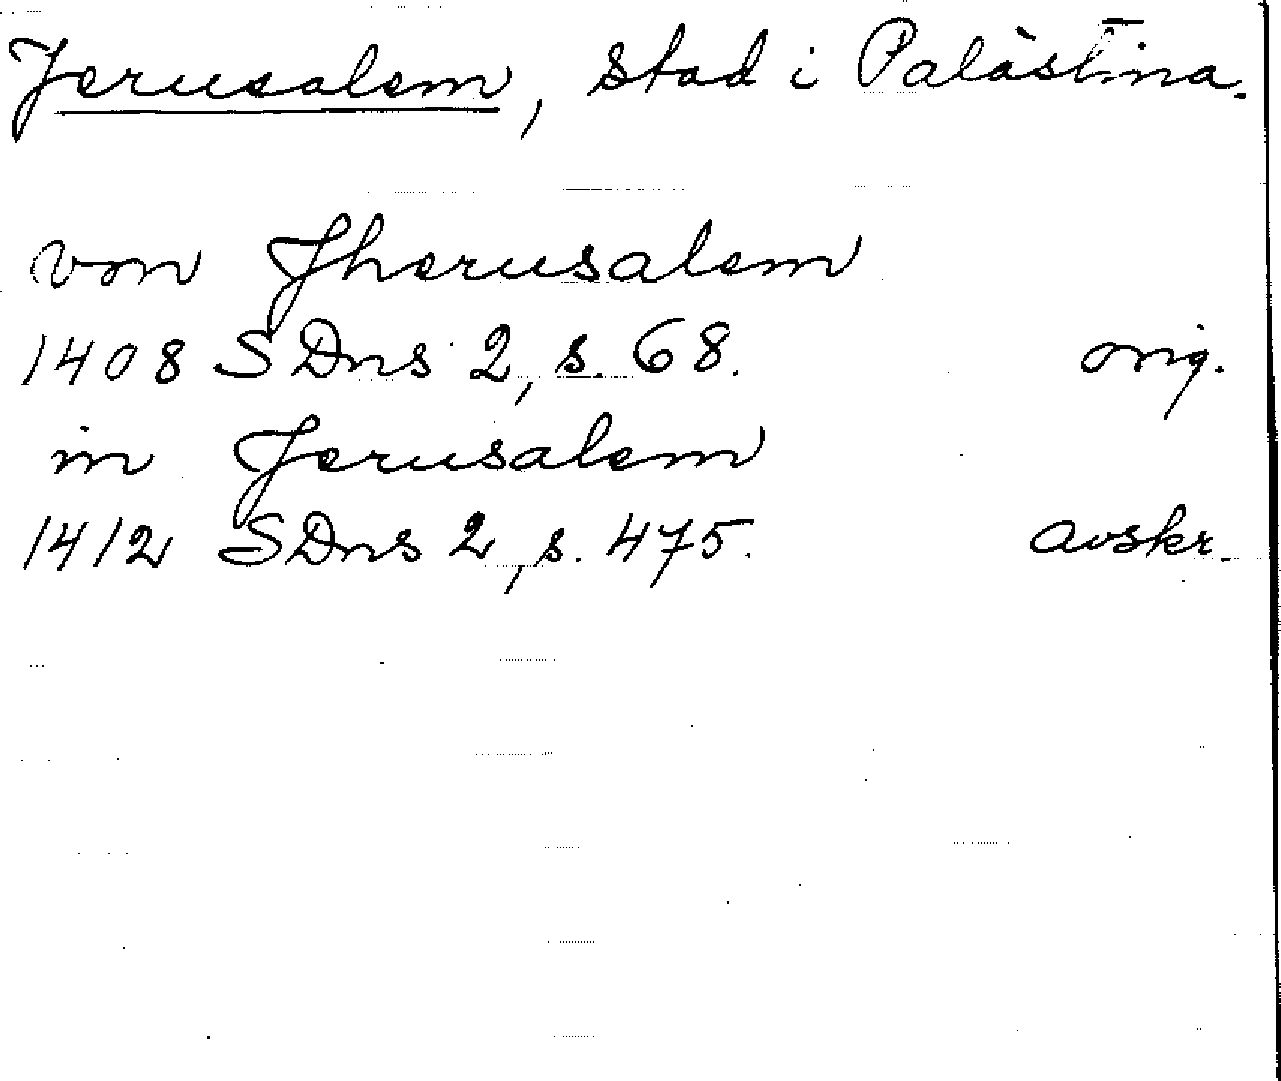 Jerusalem, stad i Palästina.
von Jherusalem
1408 SDns 2, s. 68. orig.
in Jerusalem
1412 SDns 2, s. 475. avskr.